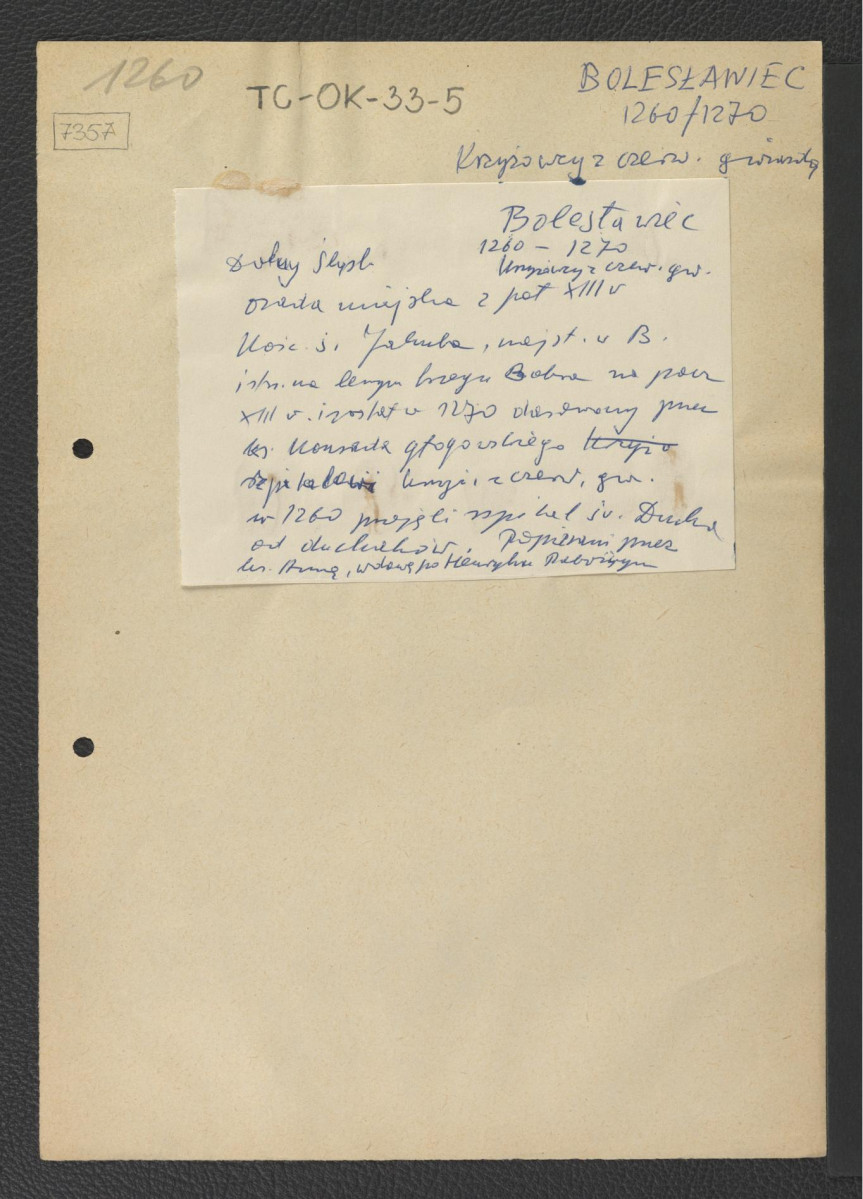 1260
TC-OK-33-5
BOLESŁAWIEC
1260/1270
7357
Krzyżowcy z czerw. gwiazdą
Bolesławiec
1260 – 1270
Dolny Śląsk
Krzyżowcy z czerw. gw.
osada miejska z poł XIII w
Kośc. ś. Jakuba, miejst. w B.
istn. na lewym brzegu Bobra na pocz
XIII w. i został w 1270 darowany przez
ks. Konrada głogowskiego Krzyżo
szpitalowi krzyż. z czerw. gw.
w 1260 przejęli szpital św. Ducha
od duchaków. Popierani przez
ks. Annę, wdowę po Henryku Pobożnym